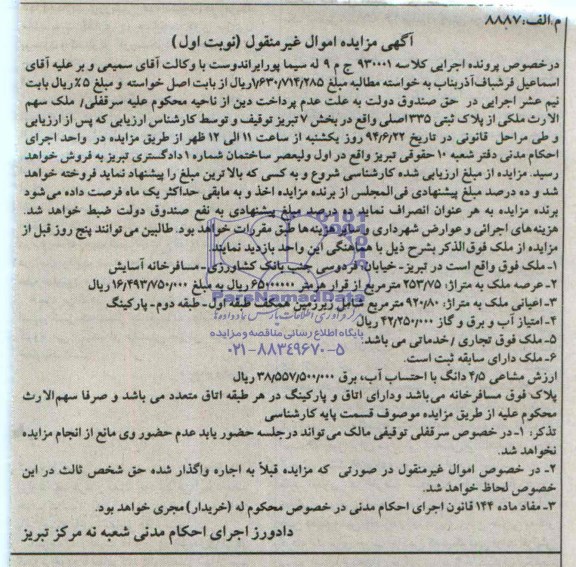 م.الف: ۸۸۸۷
آگهی مزایده اموال غیرمنقول (نوبت اول)
درخصوص پرونده اجرایی کلاسه ۹۳۰۰۰۱ ج م ۹ له سیما پورایراندوست با وکالت آقای سمیعی و بر علیه آقای
اسماعیل فرشباف آذربناب به خواسته مطالبه مبلغ ۷/۶۳۰/۷۱۴/۲۸۵ریال از بابت اصل خواسته و مبلغ ۵٪ریال بابت
نیم عشر اجرایی در حق صندوق دولت به علت عدم پرداخت دین از ناحیه محکوم علیه سرقفلی/ ملک سهم
الارث ملکی از پلاک ثبتی ۳۳۵اصلی واقع در بخش ۷ تبریز توقیف و توسط کارشناس ارزیابی که پس از ارزیابی
و طی مراحل قانونی در تاریخ ۹۴/۶/۲۲ روز یکشنبه از ساعت ۱۱ الی ۱۲ ظهر از طریق مزایده در واحد اجرای
احکام مدنی دفتر شعبه ۱۰ حقوقی تبریز واقع در اول ولیعصر ساختمان شماره ۱ دادگستری تبریز به فروش خواهد
رسید. مزایده از مبلغ ارزیابی شده کارشناسی شروع و به کسی که بالاترین مبلغ را پیشنهاد نماید فروخته خواهد
شد و ده درصد مبلغ پیشنهادی فی‌المجلس از برنده مزایده اخذ و به مابقی حداکثر یک ماه فرصت داده می‌شود
برنده مزایده به هر عنوان انصراف نماید ده درصد مبلغ پیشنهادی به نفع صندوق دولت ضبط خواهد شد.
هزینه‌های اجرائی و عوارض شهرداری و سایر هزینه‌ها طبق مقررات خواهد بود. طالبین می‌توانند پنج روز قبل از
مزایده از ملک فوق‌الذکر بشرح ذیل با هماهنگی این واحد بازدید نمایند.
۱- ملک فوق واقع است در تبریز- خیابان فردوسی جنب بانک کشاورزی- مسافرخانه آسایش
۲- عرصه ملک به متراژ: ۲۵۳/۷۵ مترمربع از قرار هرمتر ۶۵۰۰۰۰۰۰ ریال به مبلغ ۱۶/۴۹۳/۷۵۰/۰۰۰ریال
۳- اعیانی ملک به متراژ: ۹۲۰/۸۰ مترمربع شامل زیرزمین همکف طبقه اول- طبقه دوم- پارکینگ
۴- امتیاز آب و برق و گاز ۴۲/۲۵۰/۰۰۰ ریال
۵- ملک فوق تجاری / خدماتی می باشد.
۶- ملک دارای سابقه ثبت است.
ارزش مشاعی ۴/۵ دانگ با احتساب آب، برق ۳۸/۵۵۷/۵۰۰/۰۰۰ ریال
پلاک فوق مسافرخانه می‌باشد ودارای اتاق و پارکینگ در هر طبقه اتاق متعدد می باشد و صرفا سهم‌الارث
محکوم علیه از طریق مزایده موصوف قسمت پایه کارشناسی
تذکر: ۱- در خصوص سرقفلی توقیفی مالک می‌تواند درجلسه حضور یابد عدم حضور وی مانع از انجام مزایده
نخواهد شد.
۲- در خصوص اموال غیرمنقول در صورتی که مزایده قبلاً به اجاره واگذار شده حق شخص ثالث در این
خصوص لحاظ خواهد شد.
۳- مفاد ماده ۱۴۴ قانون اجرای احکام مدنی در خصوص محکوم له (خریدار) مجری خواهد بود.
دادورز اجرای احکام مدنی شعبه نه مرکز تبریز
ParsNamadData
گردآوری اطلاعات پارس نماد داده‌ها
پایگاه اطلاع رسانی مناقصه و مزایده
۰۲۱-۸۸۳۴۹۶۷۰-۵